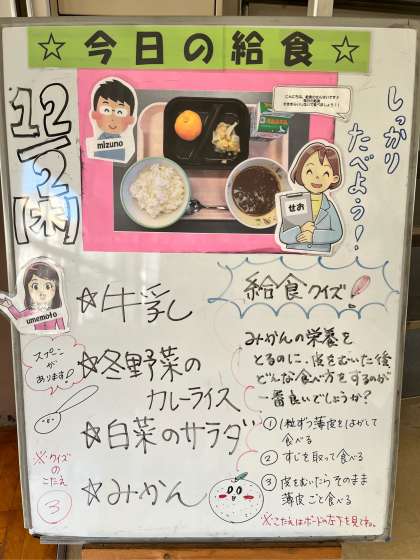 ☆今日の給食☆
12/2 [木]
mizuno
しっかり
たべよう!
せお
umemoto
スプーンが
あります!
☆牛乳
☆冬野菜の
カレーライス
☆白菜のサラダ
☆みかん
※クイズ
の
こたえ
③
給食クイズ!
みかんの栄養を
とるのに、皮をむいた後
どんな食べ方をするのが
一番良いでしょうか?
① 1粒ずつ薄皮をはがして
食べる
② すじを取って食べる
③ 皮をむいたらそのまま
薄皮ごと食べる
※こたえはボードの左下を見てね。